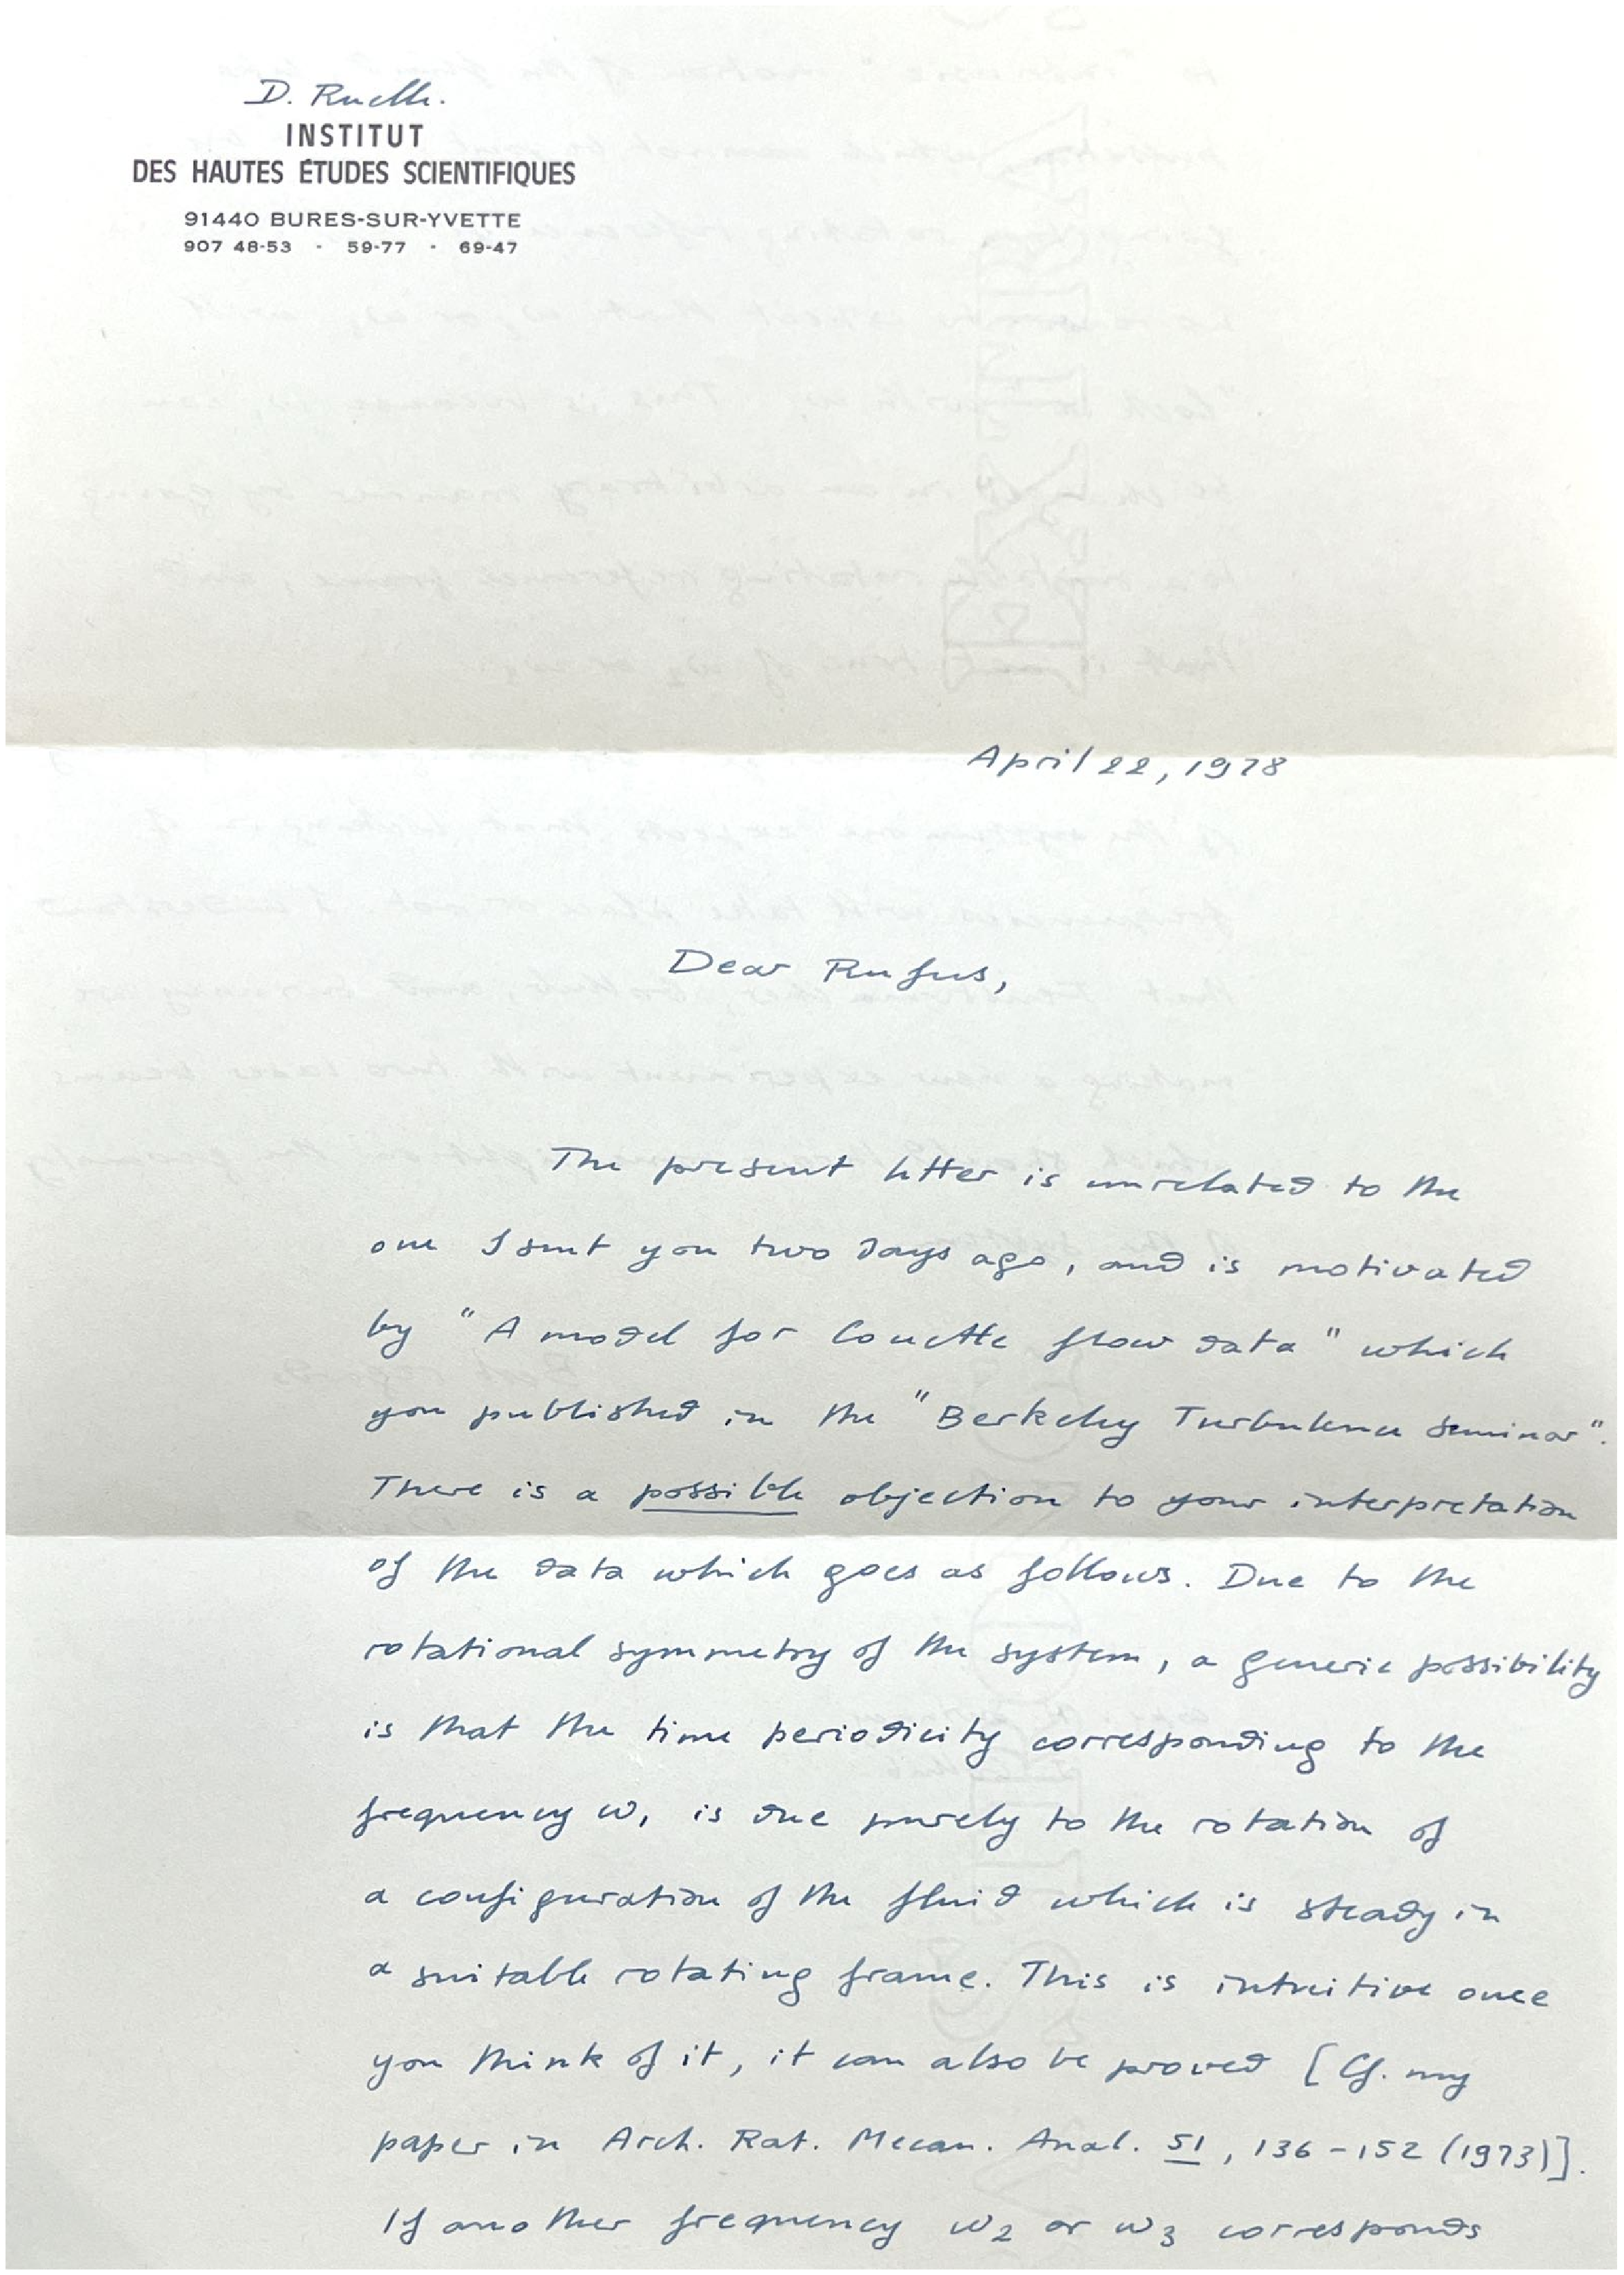 D. Ruelle.
INSTITUT
DES HAUTES ÉTUDES SCIENTIFIQUES
91440 BURES-SUR-YVETTE
907 48-53 · 59-77 · 69-47
April 22, 1978
Dear Rufus,
The present letter is unrelated to the
one I sent you two days ago, and is motivated
by "A model for Couette flow data" which
you published in the "Berkeley Turbulence Seminar".
There is a possible objection to your interpretation
of the data which goes as follows. Due to the
rotational symmetry of the system, a generic possibility
is that the time periodicity corresponding to the
frequency ω₁ is due purely to the rotation of
a configuration of the fluid which is steady in
a suitable rotating frame. This is intuitive once
you think of it, it can also be proved [Cf. my
paper in Arch. Rat. Mecan. Anal. 51, 136-152 (1973)].
If another frequency ω₂ or ω₃ corresponds